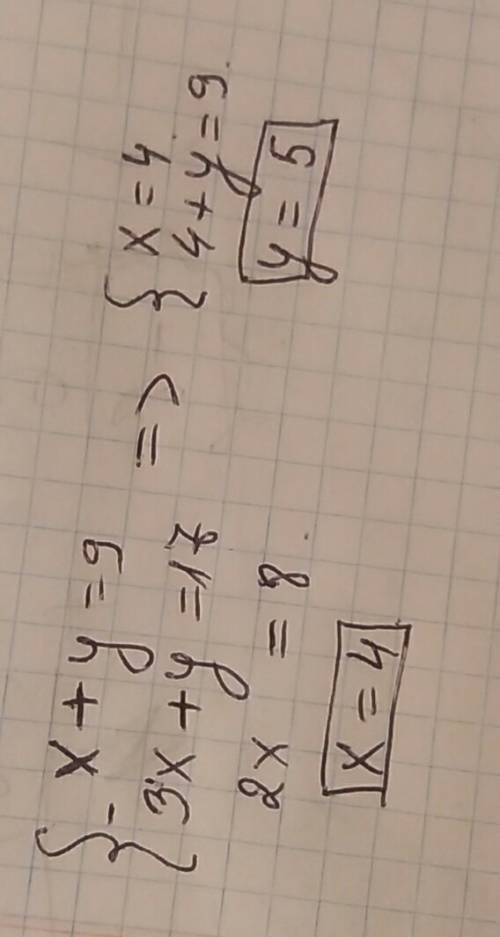 { - x + y = 9
3x + y = 17
2x = 8
x = 4
=>
{ x = 4
4 + y = 9
y = 5